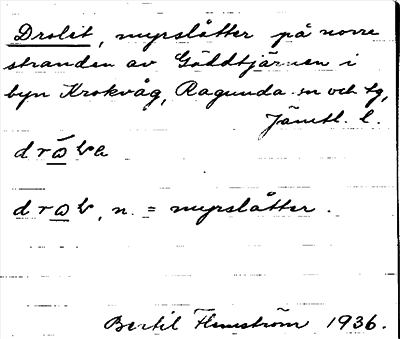 Drolit, myrslåtter på norre
stranden av Gäddtjärnen i
byn Krokvåg, Ragunda sn och tg,
Jämtl. l.
drωba
drωb, n. = myrslåtter.
Bertil Flemström 1936.